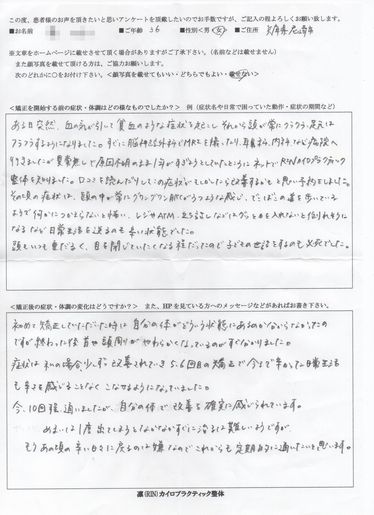 この度、患者様のお声を頂きたいと思いアンケートを頂戴したいのでお手数ですが、ご記入の程よろしくお願い致します。
■お名前 ■ご年齢 36 ■性別＜男・女＞ ■ご住所 兵庫県尼崎市
※文章をホームページに載せさせて頂く場合がありますがご了承下さい。（名前などは載せません）
また顔写真を載せて頂ける方は、ご協力お願いします。
次のどれかに○をお付け下さい。＜顔写真を載せてもいい・どちらでもよい・載せない＞
＜矯正を開始する前の症状・体調はどの様なものでしたか？ 例（症状名や日常で困っていた動作・症状の期間など）
ある日突然、血の気が引して貧血のような症状を起こし それから頭が常にクラクラ、足元は
フラフラするようになりました。すぐに脳神経外科でMRIを撮ったり、耳鼻科、内科など病院へ
行きましたが異常無しで原因不明のまま1年が過ぎようとしていたところにネットでRINカイロプラクティック
整体を知りました。口コミを読んだりしてこの症状がもしかしたら改善するかもと思い予約をしました。
その頃の症状は、頭の中が常にグワングワン揺れているような感じ、でこぼこの道を歩いている
ようで何かにつかまらないと怖い、レジやATM、立ち話しなどはグッと力を入れないと倒れそうに
なるなど日常生活を送るのも辛い状態でした。
頭もいつも重だるく、目を閉じていたくなる程だったので子どもの世話をするのも必死でした。
＜矯正後の症状・体調の変化はどうですか？ また、HPを見ている方へのメッセージなどがあればお書き下さい。
初めて矯正していただいた時は自分の体がどういう状態にあるのかわからなかったの
ですが、終わった後 首や頭周りがやわらかくなっているのがすぐわかりました。
症状は私の場合少しずつ改善されていき5、6回目の矯正で今まで辛かった日常生活
も辛さを感じることなくこなせるようになっていました。
今、10回程通いましたが、自分の体で改善を確実に感じられています。
めまいは1度出てしまうとなかなかすぐに治るのは難しいようですが、
もうあの頃の辛い日々に戻るのは嫌なのでこれからも定期的に通いたいと思います。
凛(RIN)カイロプラクティック整体